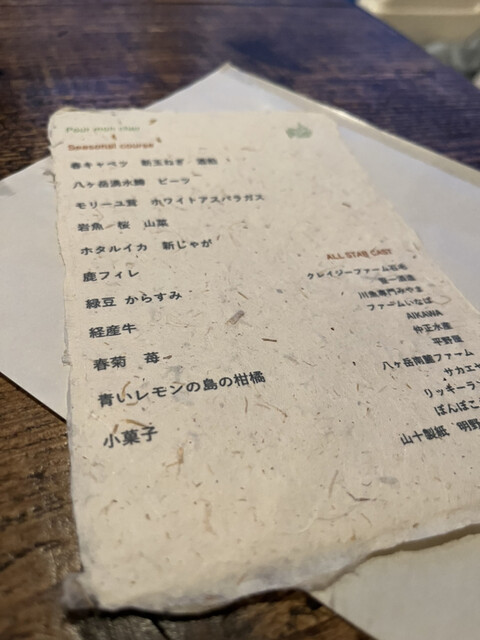 Pour mon cher
Seasonal course
春キャベツ 新玉ねぎ 酒粕
八ヶ岳湧水鱒 ビーツ
モリーユ茸 ホワイトアスパラガス
岩魚 桜 山菜
ホタルイカ 新じゃが
鹿フィレ
緑豆 からすみ
経産牛
春菊 苺
青いレモンの島の柑橘
小菓子
ALL STAR CAST
クレイジーファーム
川魚専門みやま
ファームいなば
AIKAWA
仲正水産
平野屋
八ヶ岳南麓ファーム
サカエヤ
リッキーラン
ぽんぽこ
山十製紙 明野